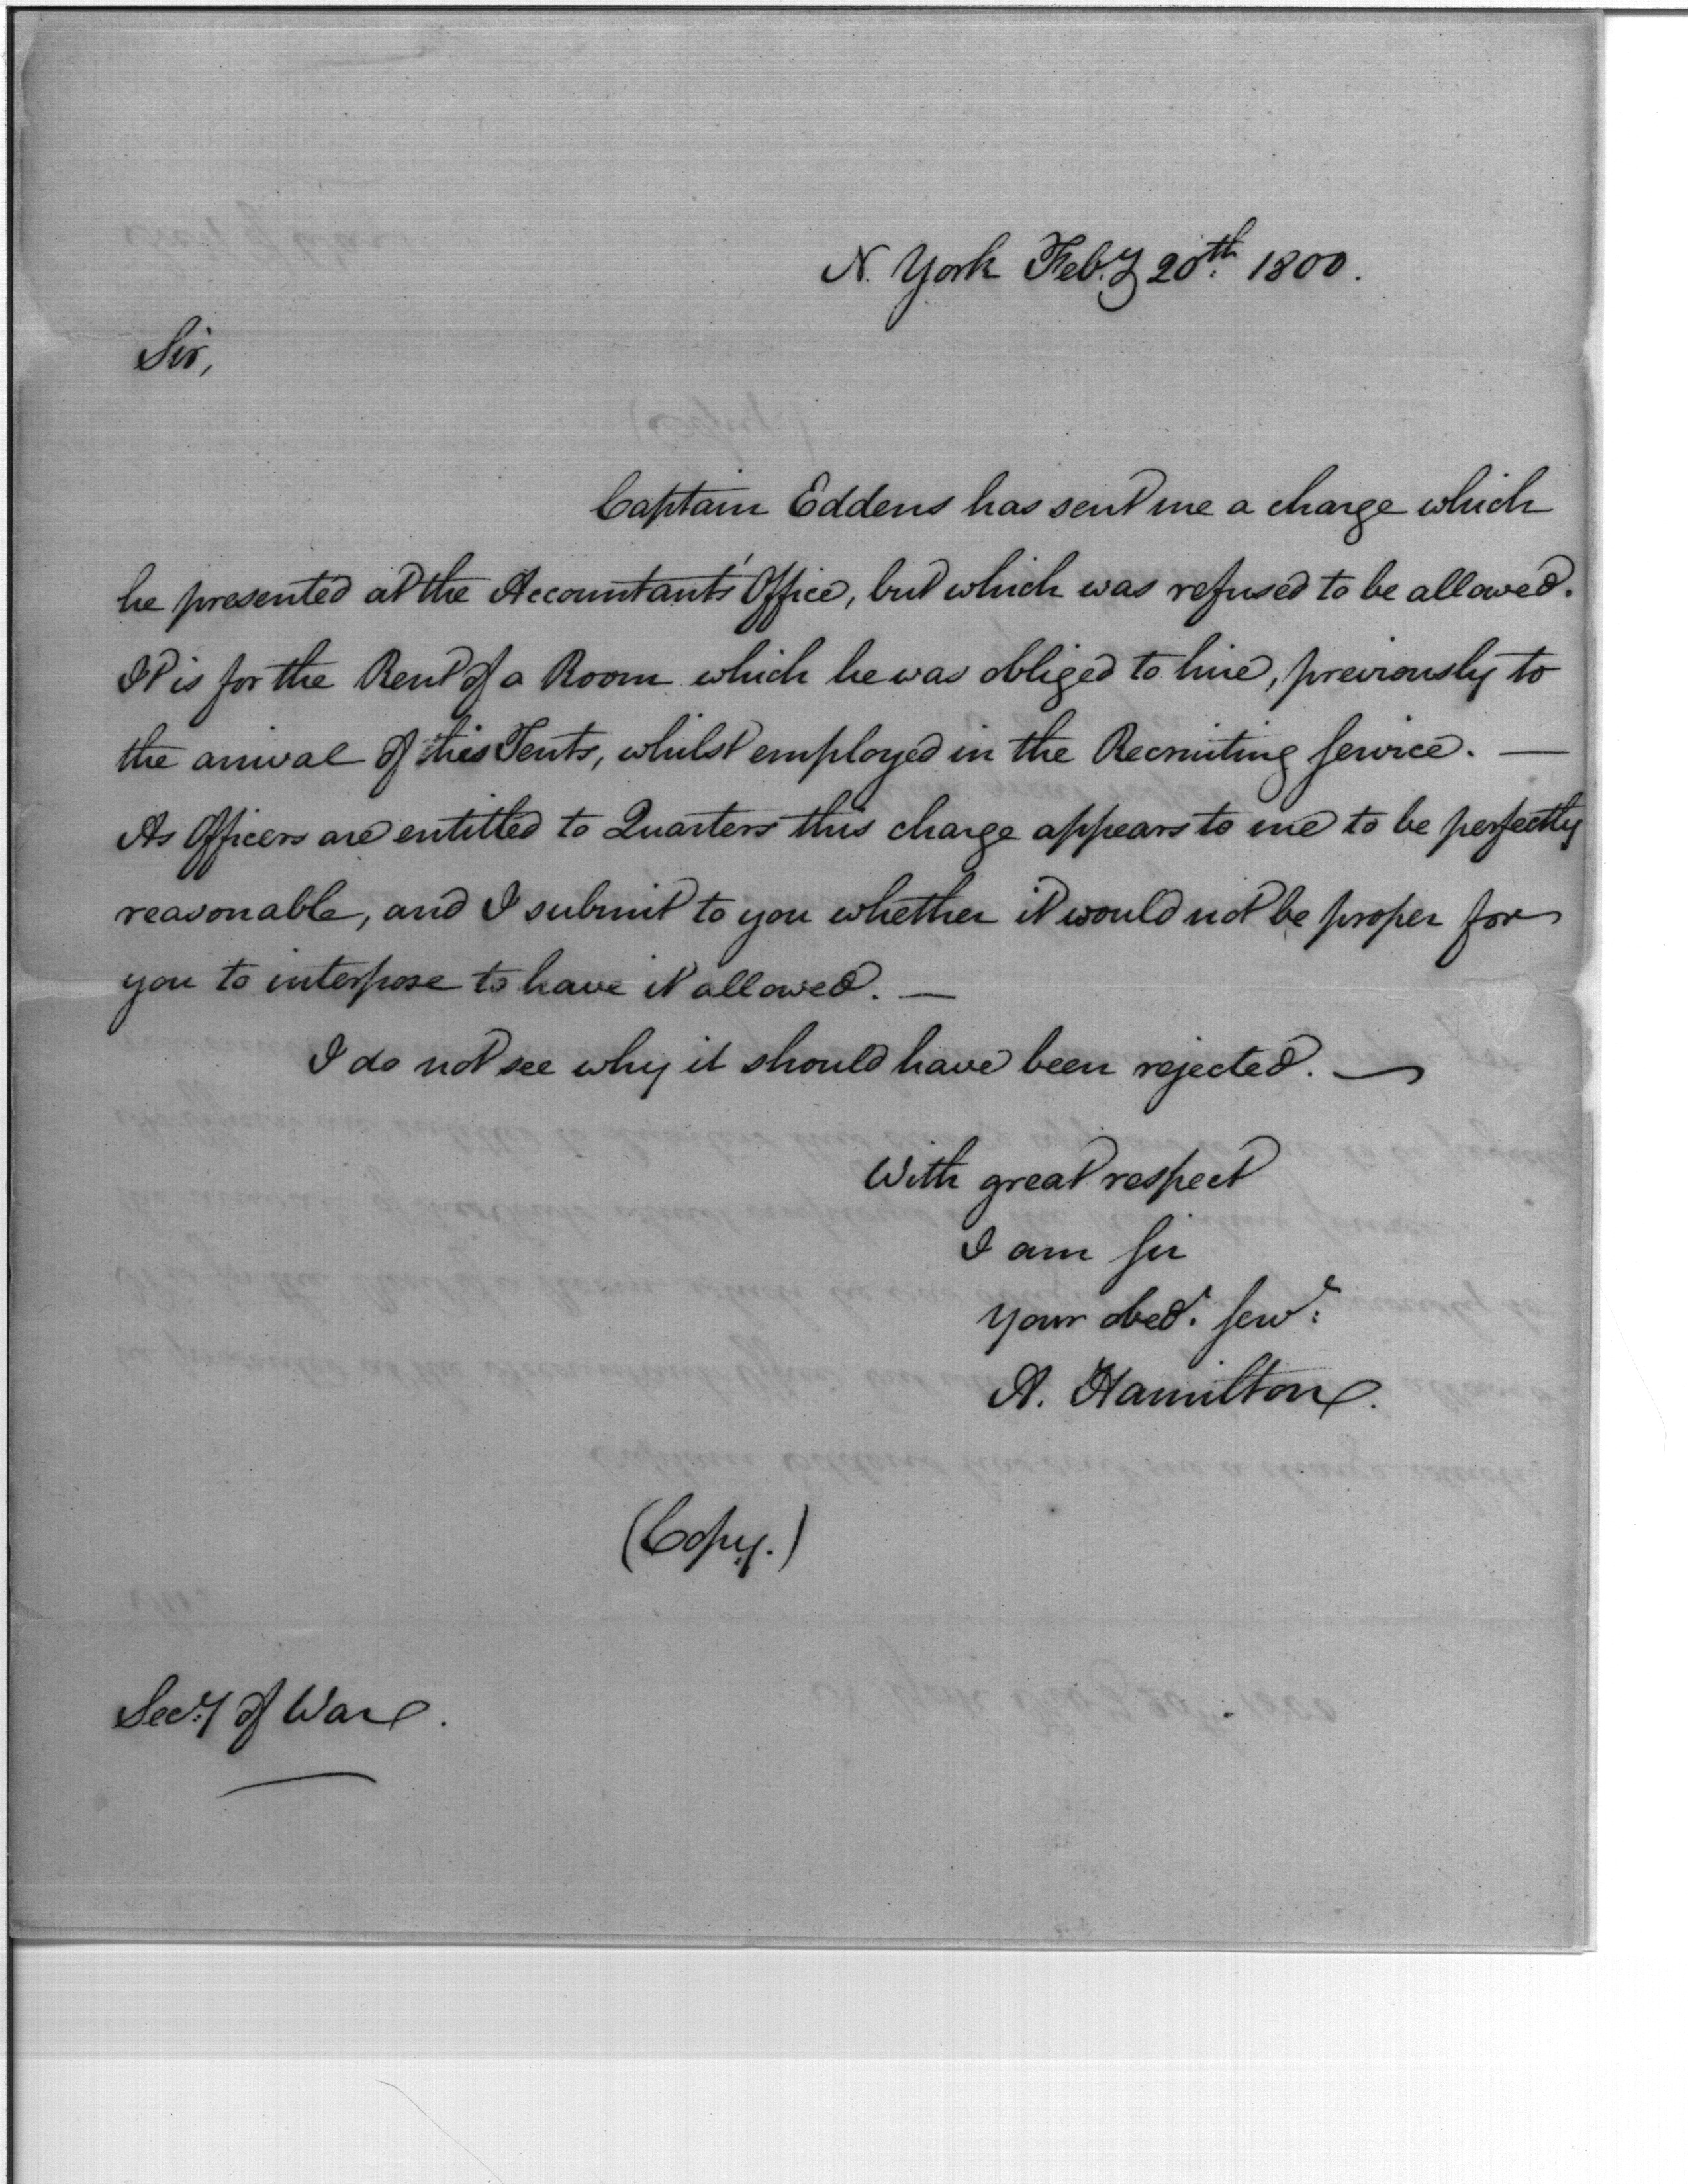 N. York Feb.y 20th. 1800.
Sir,
Captain Eddens has sent me a charge which
he presented at the Accountant's Office, but which was refused to be allowed.
It is for the Rent of a Room which he was obliged to hire, previously to
the arrival of his Tents, whilst employed in the Recruiting Service. —
As Officers are entitled to Quarters this charge appears to me to be perfectly
reasonable, and I submit to you whether it would not be proper for
you to interpose to have it allowed. —
I do not see why it should have been rejected. —
With great respect
I am Sir
Your obed.t Serv.t
A. Hamilton.
(Copy.)
Sec.y of War.